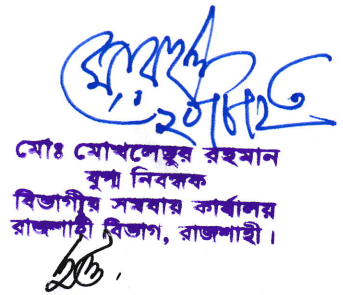 মোঃ মোখলেছুর রহমান
যুগ্ম নিবন্ধক
বিভাগীয় সমবায় কার্যালয়
রাজশাহী বিভাগ, রাজশাহী।